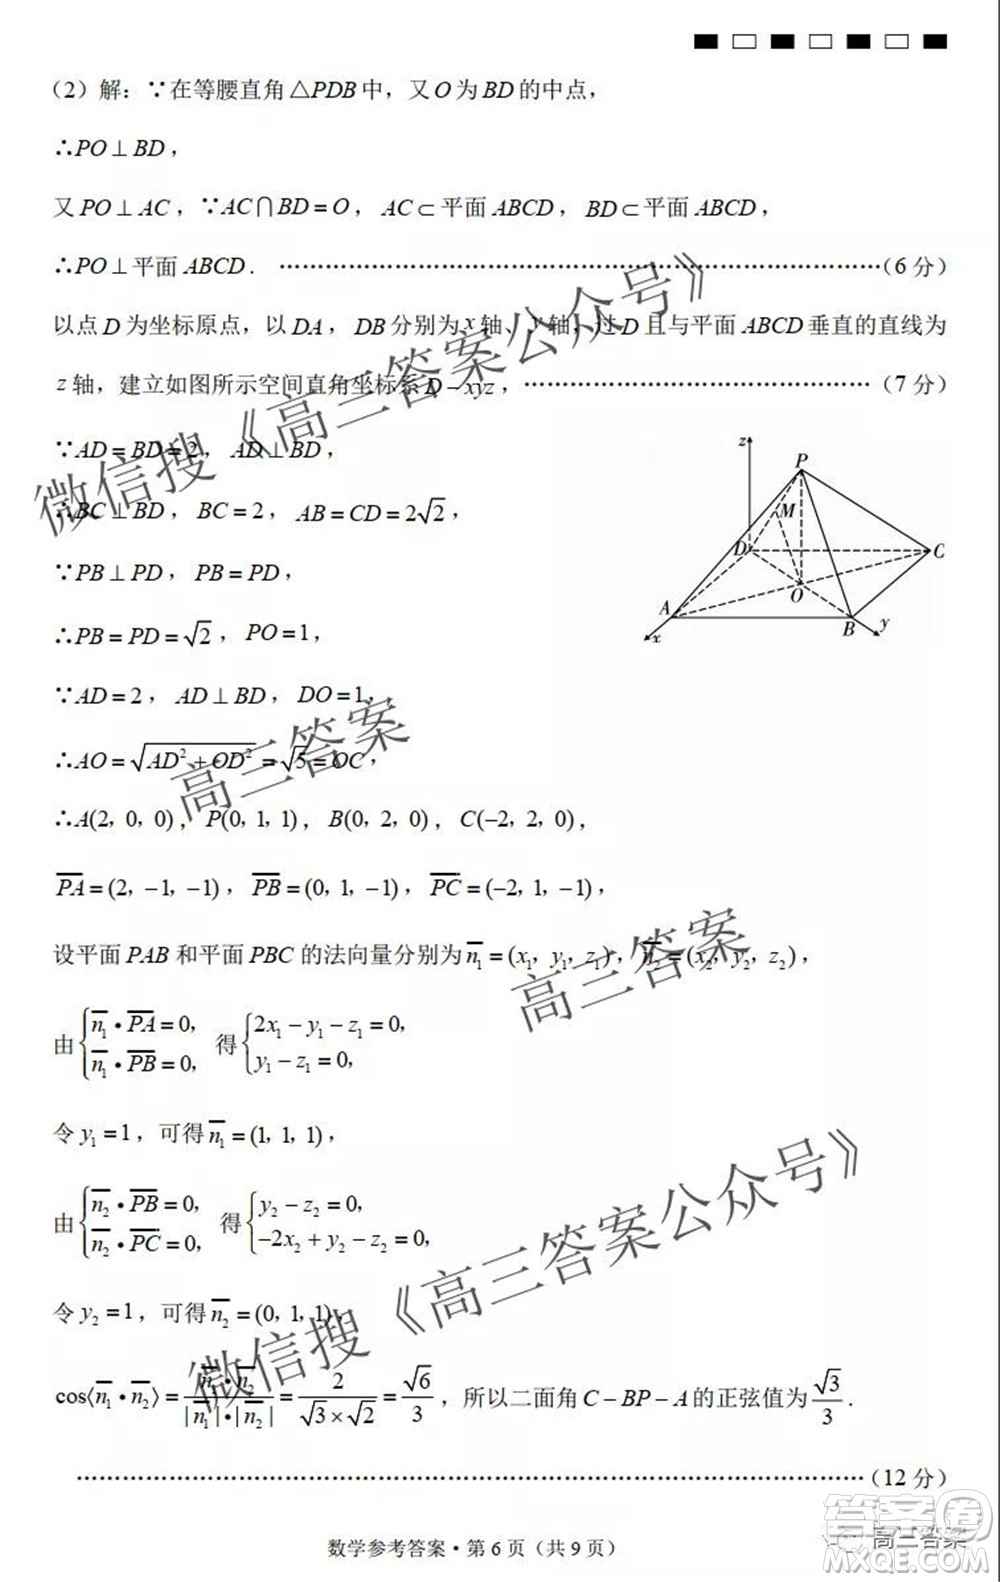 （2）解：∵在等腰直角△PDB中，又O为BD的中点，
∴PO⊥BD，
又PO⊥AC，∵AC∩BD=O，AC⊂平面ABCD，BD⊂平面ABCD，
∴PO⊥平面ABCD．……………………………………………（6分）
以点D为坐标原点，以DA，DB分别为x轴、y轴，过D且与平面ABCD垂直的直线为
z轴，建立如图所示空间直角坐标系D−xyz，……………………………（7分）
∵AD=BD=2，AD⊥BD，
∴BC⊥BD，BC=2，AB=CD=2√2，
∵PB⊥PD，PB=PD，
∴PB=PD=√2，PO=1，
∵AD=2，AD⊥BD，DO=1，
∴AO=√(AD²+OD²)=√5=OC，
∴A(2，0，0)，P(0，1，1)，B(0，2，0)，C(−2，2，0)，
PA=(2，−1，−1)，PB=(0，1，−1)，PC=(−2，1，−1)，
设平面PAB和平面PBC的法向量分别为n₁=(x₁，y₁，z₁)，n₂=(x₂，y₂，z₂)，
由{n₁•PA=0，n₁•PB=0，得{2x₁−y₁−z₁=0，y₁−z₁=0，
令y₁=1，可得n₁=(1，1，1)，
由{n₂•PB=0，n₂•PC=0，得{y₂−z₂=0，−2x₂+y₂−z₂=0，
令y₂=1，可得n₂=(0，1，1)，
cos⟨n₁•n₂⟩=n₁•n₂/|n₁|•|n₂|=2/(√3×√2)=√6/3，所以二面角C−BP−A的正弦值为√3/3．
……………………………………………………………………（12分）
z
P
M
D
C
O
A
B
x
y
微信搜《高三答案公众号》
高三答案
高三答案
微信搜《高三答案公众号》
数学参考答案·第6页（共9页）
高三答案
答案圈
MXQE.COM